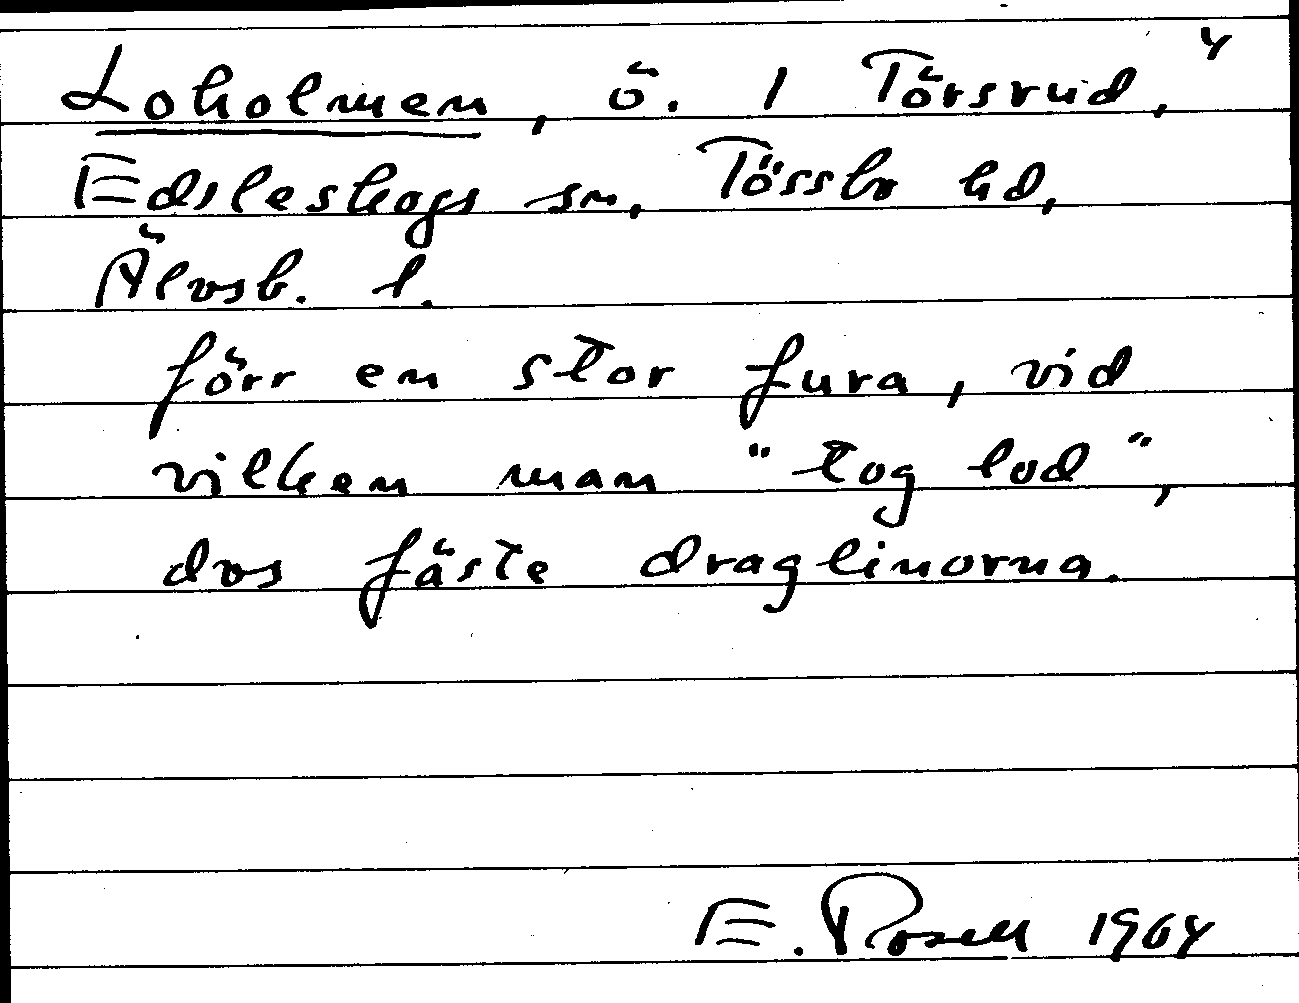 Loholmen, ö. 1 Törsrud, 4
Edsleskogs sn, Tössbo hd,
Älvsb. l.
förr en stor fura, vid
vilken man "tog lod",
dvs fäste draglinorna.
E. Rosell 1964